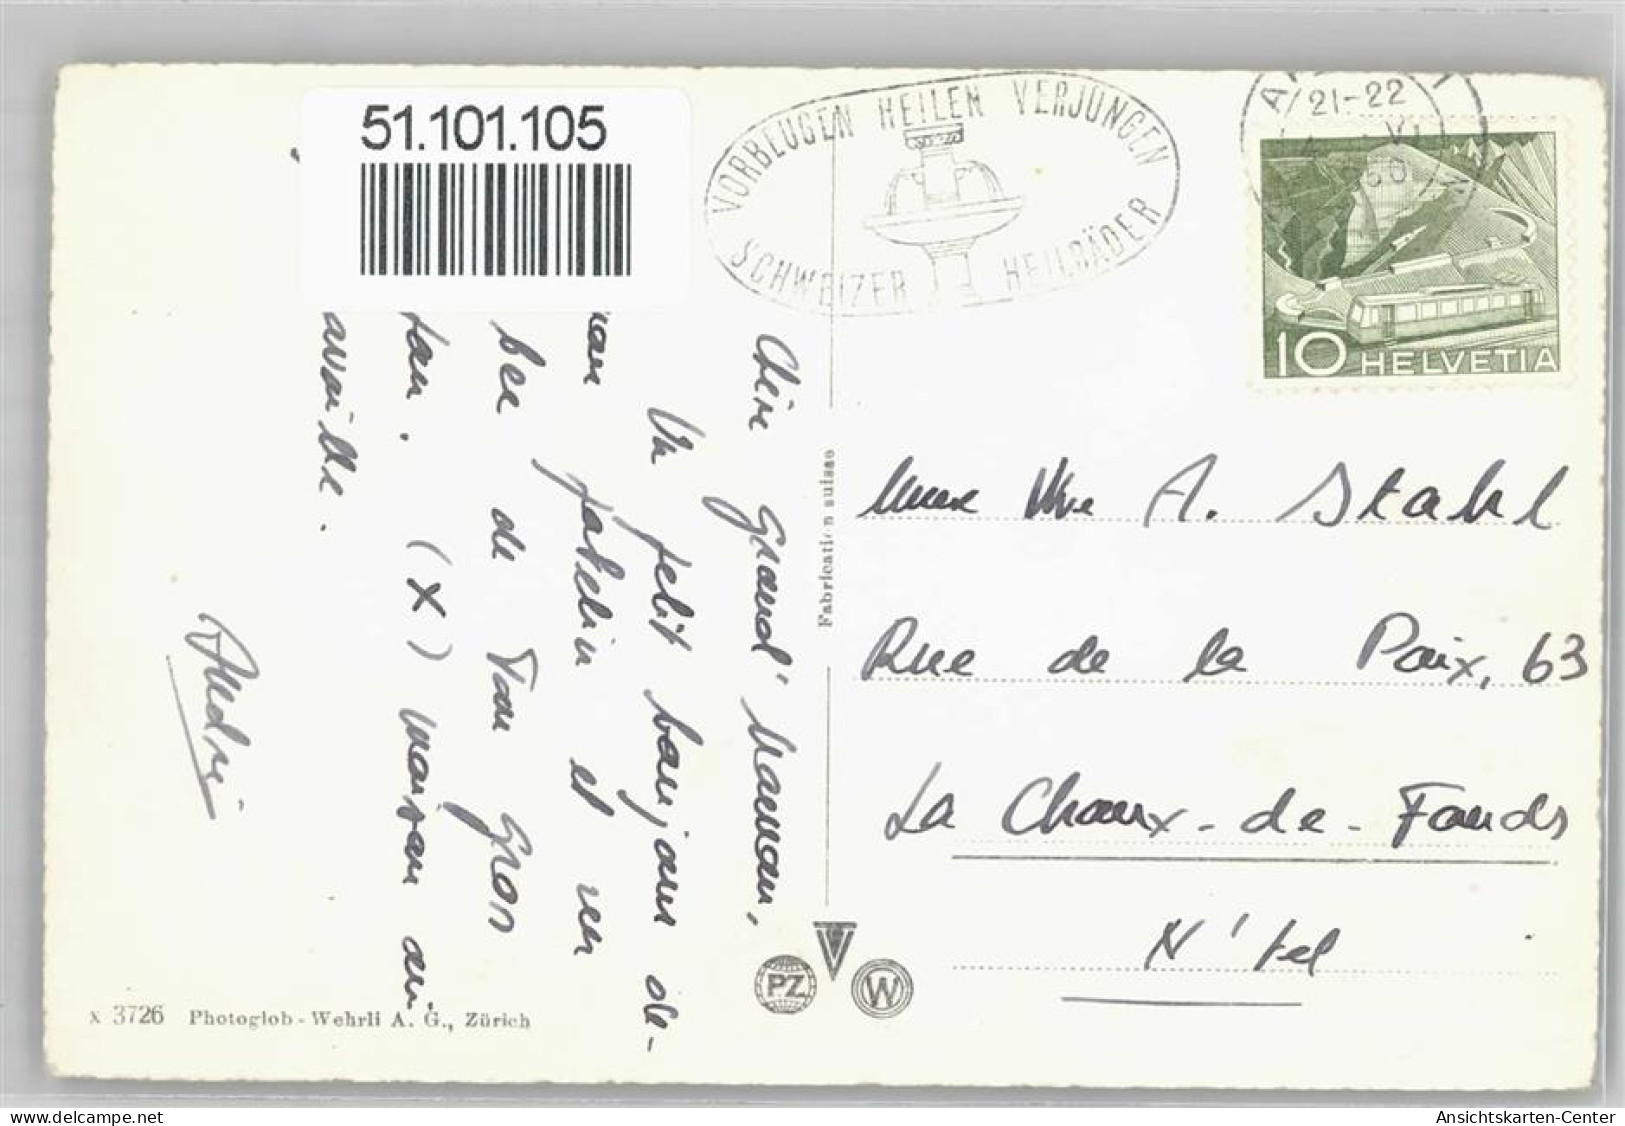 51.101.105
VORBEUGEN HEILEN VERJÜNGEN
SCHWEIZER HEILBÄDER
21-22
10 HELVETIA
Chère Grand' Maman,
Un petit bonjour de
et un
de ton gros
(X) maison où
travaille.
André
Fabrication suisse
Mme Vve A. Stahl
Rue de la Paix, 63
La Chaux-de-Fonds
N'tel
PZ W
x 3726 Photoglob-Wehrli A. G., Zürich
Ansichtskarten-Center